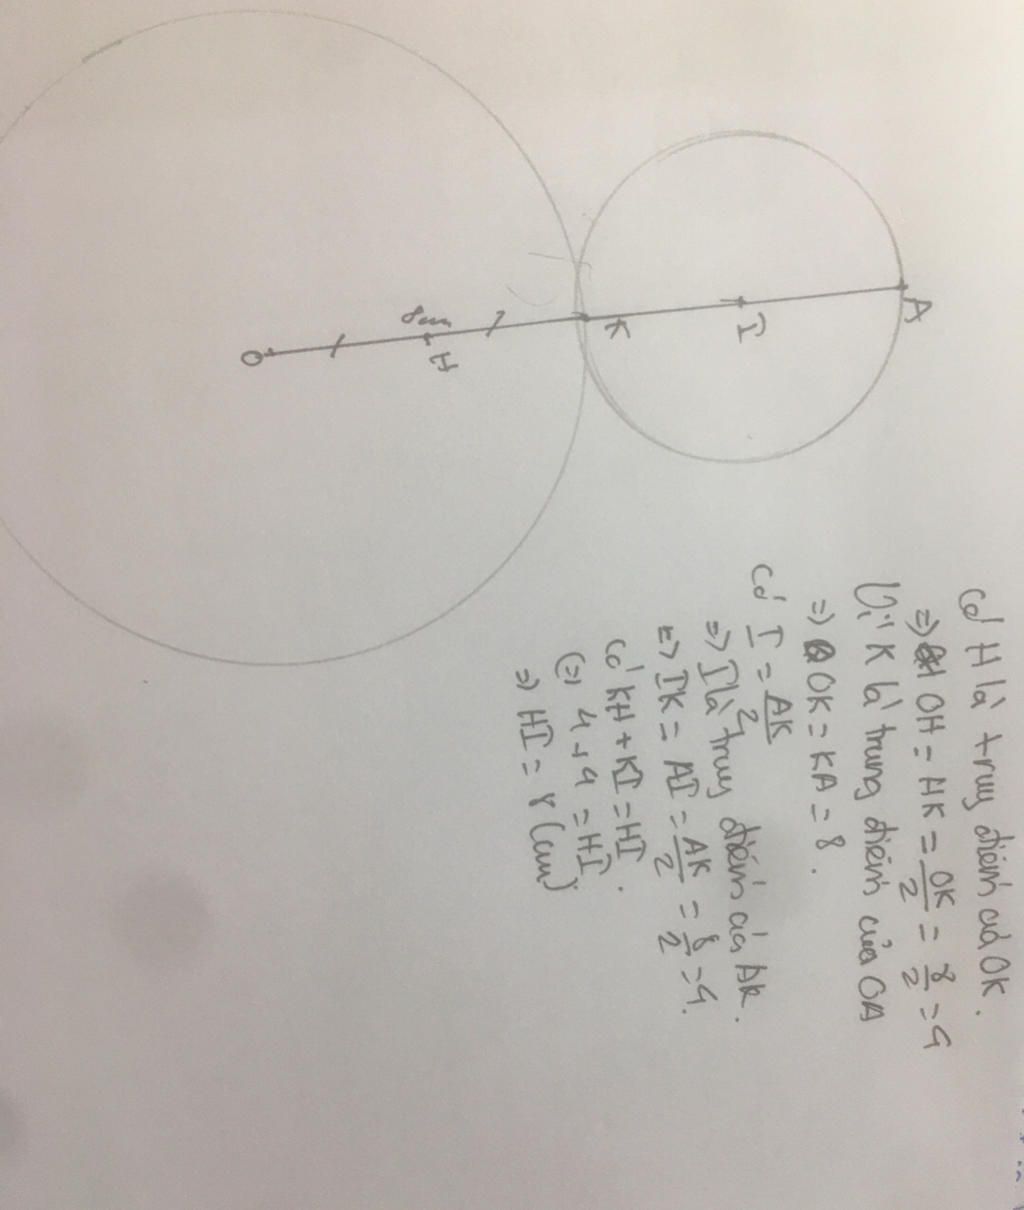 A
I
K
8cm
H
O
Có H là trug điểm củả OK.
=> OH = HK = OK/2 = 8/2 = 4
Vì K là trung điểm của OA
=> OK = KA = 8.
Có I = AK/2
=> I là trug điểm của AK.
=> IK = AI = AK/2 = 8/2 = 4.
Có KH + KI = HI.
(=) 4 + 4 = HI
=> HI = 8 (cm)